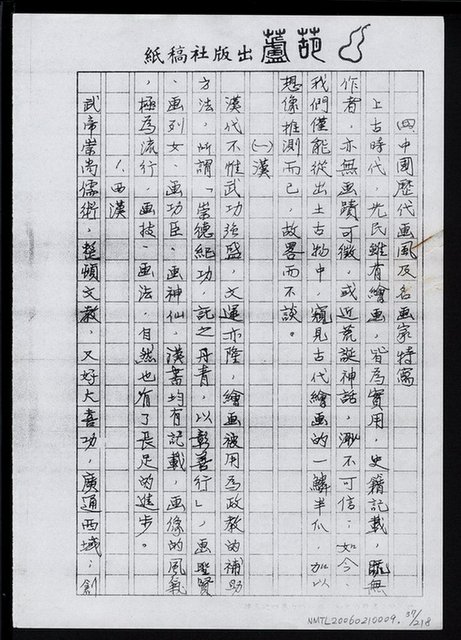 葫蘆出版社稿紙
四、中國歷代画風及名画家特寫
上古時代，先民雖有繪画，皆為實用，史籍記載，既無
作者，亦無画蹟可徵，或近荒誕神話，渺不可信；如今
我們僅能從出土古物中，窺見古代繪画的一鱗半爪，加以
想像推測而已，故畧而不談。
㈠漢
漢代不惟武功強盛，文運亦隆，繪画被用為政教的補助
方法，所謂「崇德紀功，託之丹青，以彰善行」，画聖賢
、画列女、画功臣、画神仙，漢書均有記載，画像的風氣
，極為流行，画技、画法，自然也有了長足的進步。
1.西漢
武帝崇尚儒術，整頓文教，又好大喜功，廣通西域；創
NMTL20060210009. 37/218